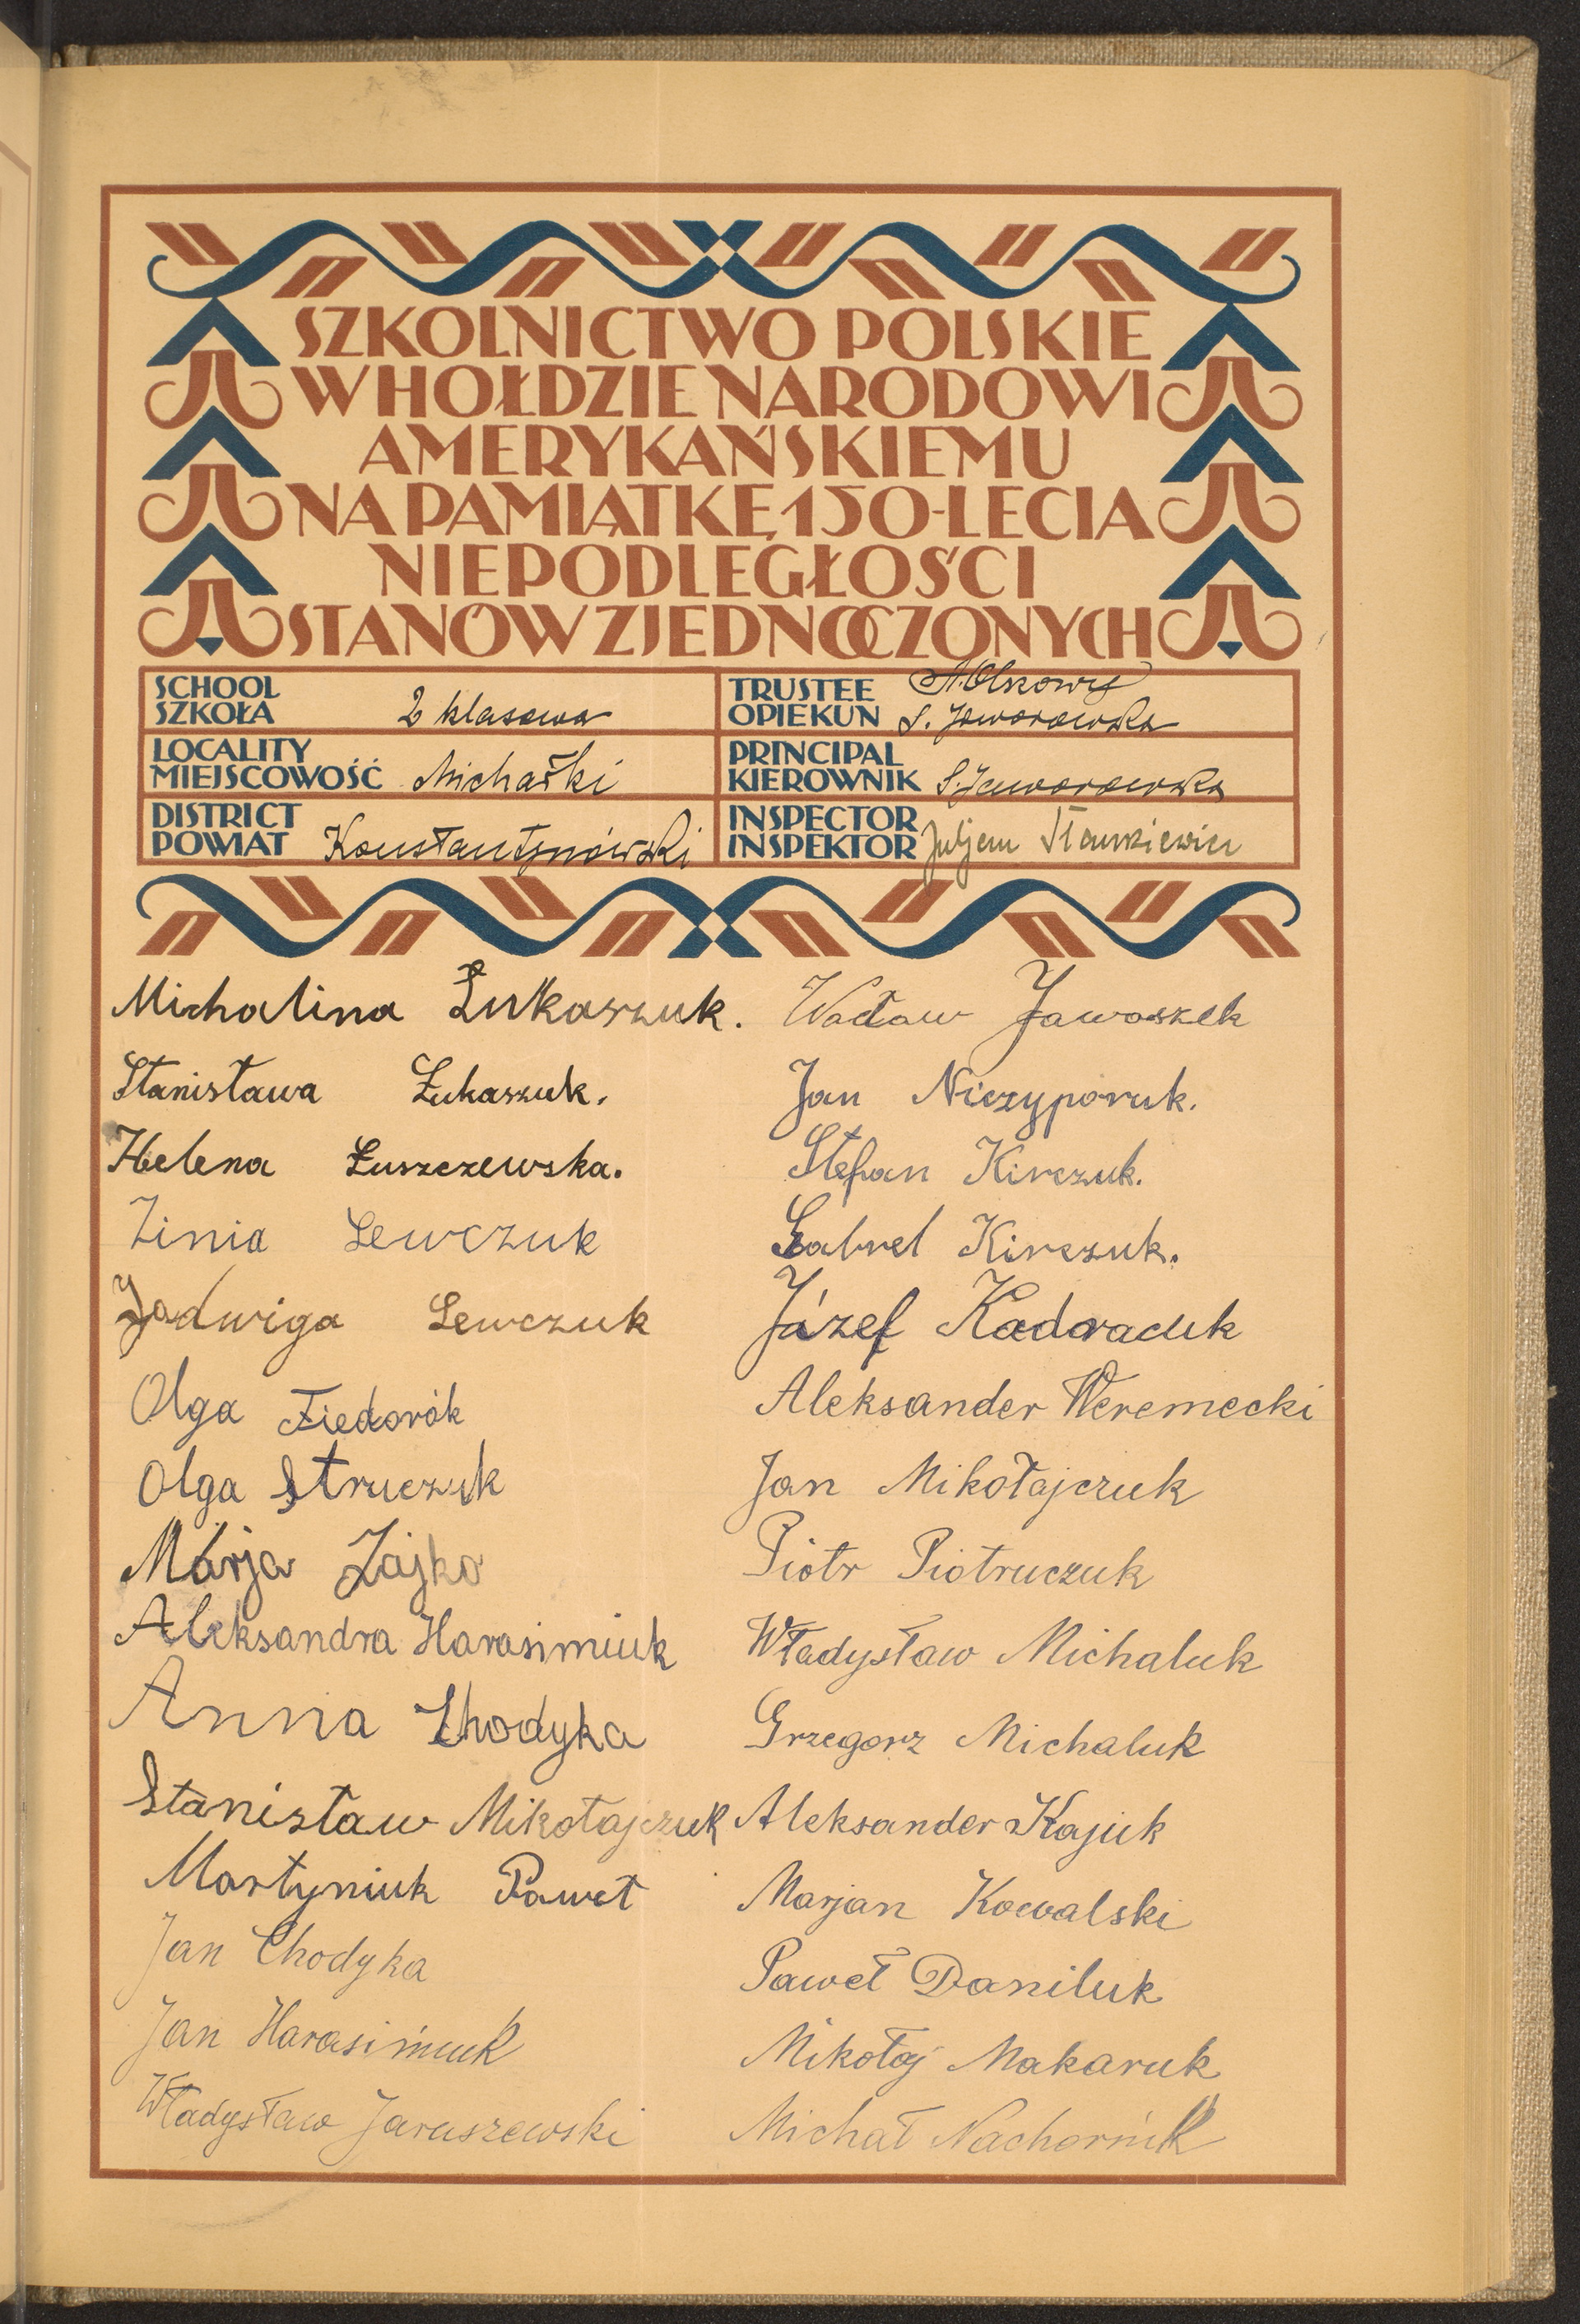 SZKOLNICTWO POLSKIE
W HOŁDZIE NARODOWI
AMERYKAŃSKIEMU
NA PAMIĄTKĘ 150-LECIA
NIEPODLEGŁOŚCI
STANÓW ZJEDNOCZONYCH
SCHOOL
SZKOŁA 2 klasowa
TRUSTEE A. Olszowy
OPIEKUN S. Jaworowska
LOCALITY
MIEJSCOWOŚĆ Michałki
PRINCIPAL
KIEROWNIK S. Jaworowska
DISTRICT
POWIAT Konstantynówski
INSPECTOR
INSPEKTOR Juljan Stankiewicz
Michalina Łukaszuk.
Stanisława Łukaszuk.
Helena Łuszczewska.
Zinia Lewczuk
Jadwiga Lewczuk
Olga Fiedorók
Olga Struczuk
Marja Zajko
Aleksandra Harasimiuk
Anna Chodyka
Stanisław Mikołajczuk
Martyniuk Paweł
Jan Chodyka
Jan Harasimiuk
Władysław Jaruszewski
Wacław Jawoszek
Jan Niczyporuk.
Stefan Kirczuk.
Gabrel Kirczuk.
Józef
Aleksander Weremecki
Jan Mikołajczuk
Piotr Piotruczuk
Władysław Michaluk
Grzegorz Michaluk
Aleksander Kajuk
Marjan Kowalski
Paweł Daniluk
Mikołaj Makaruk
Michał